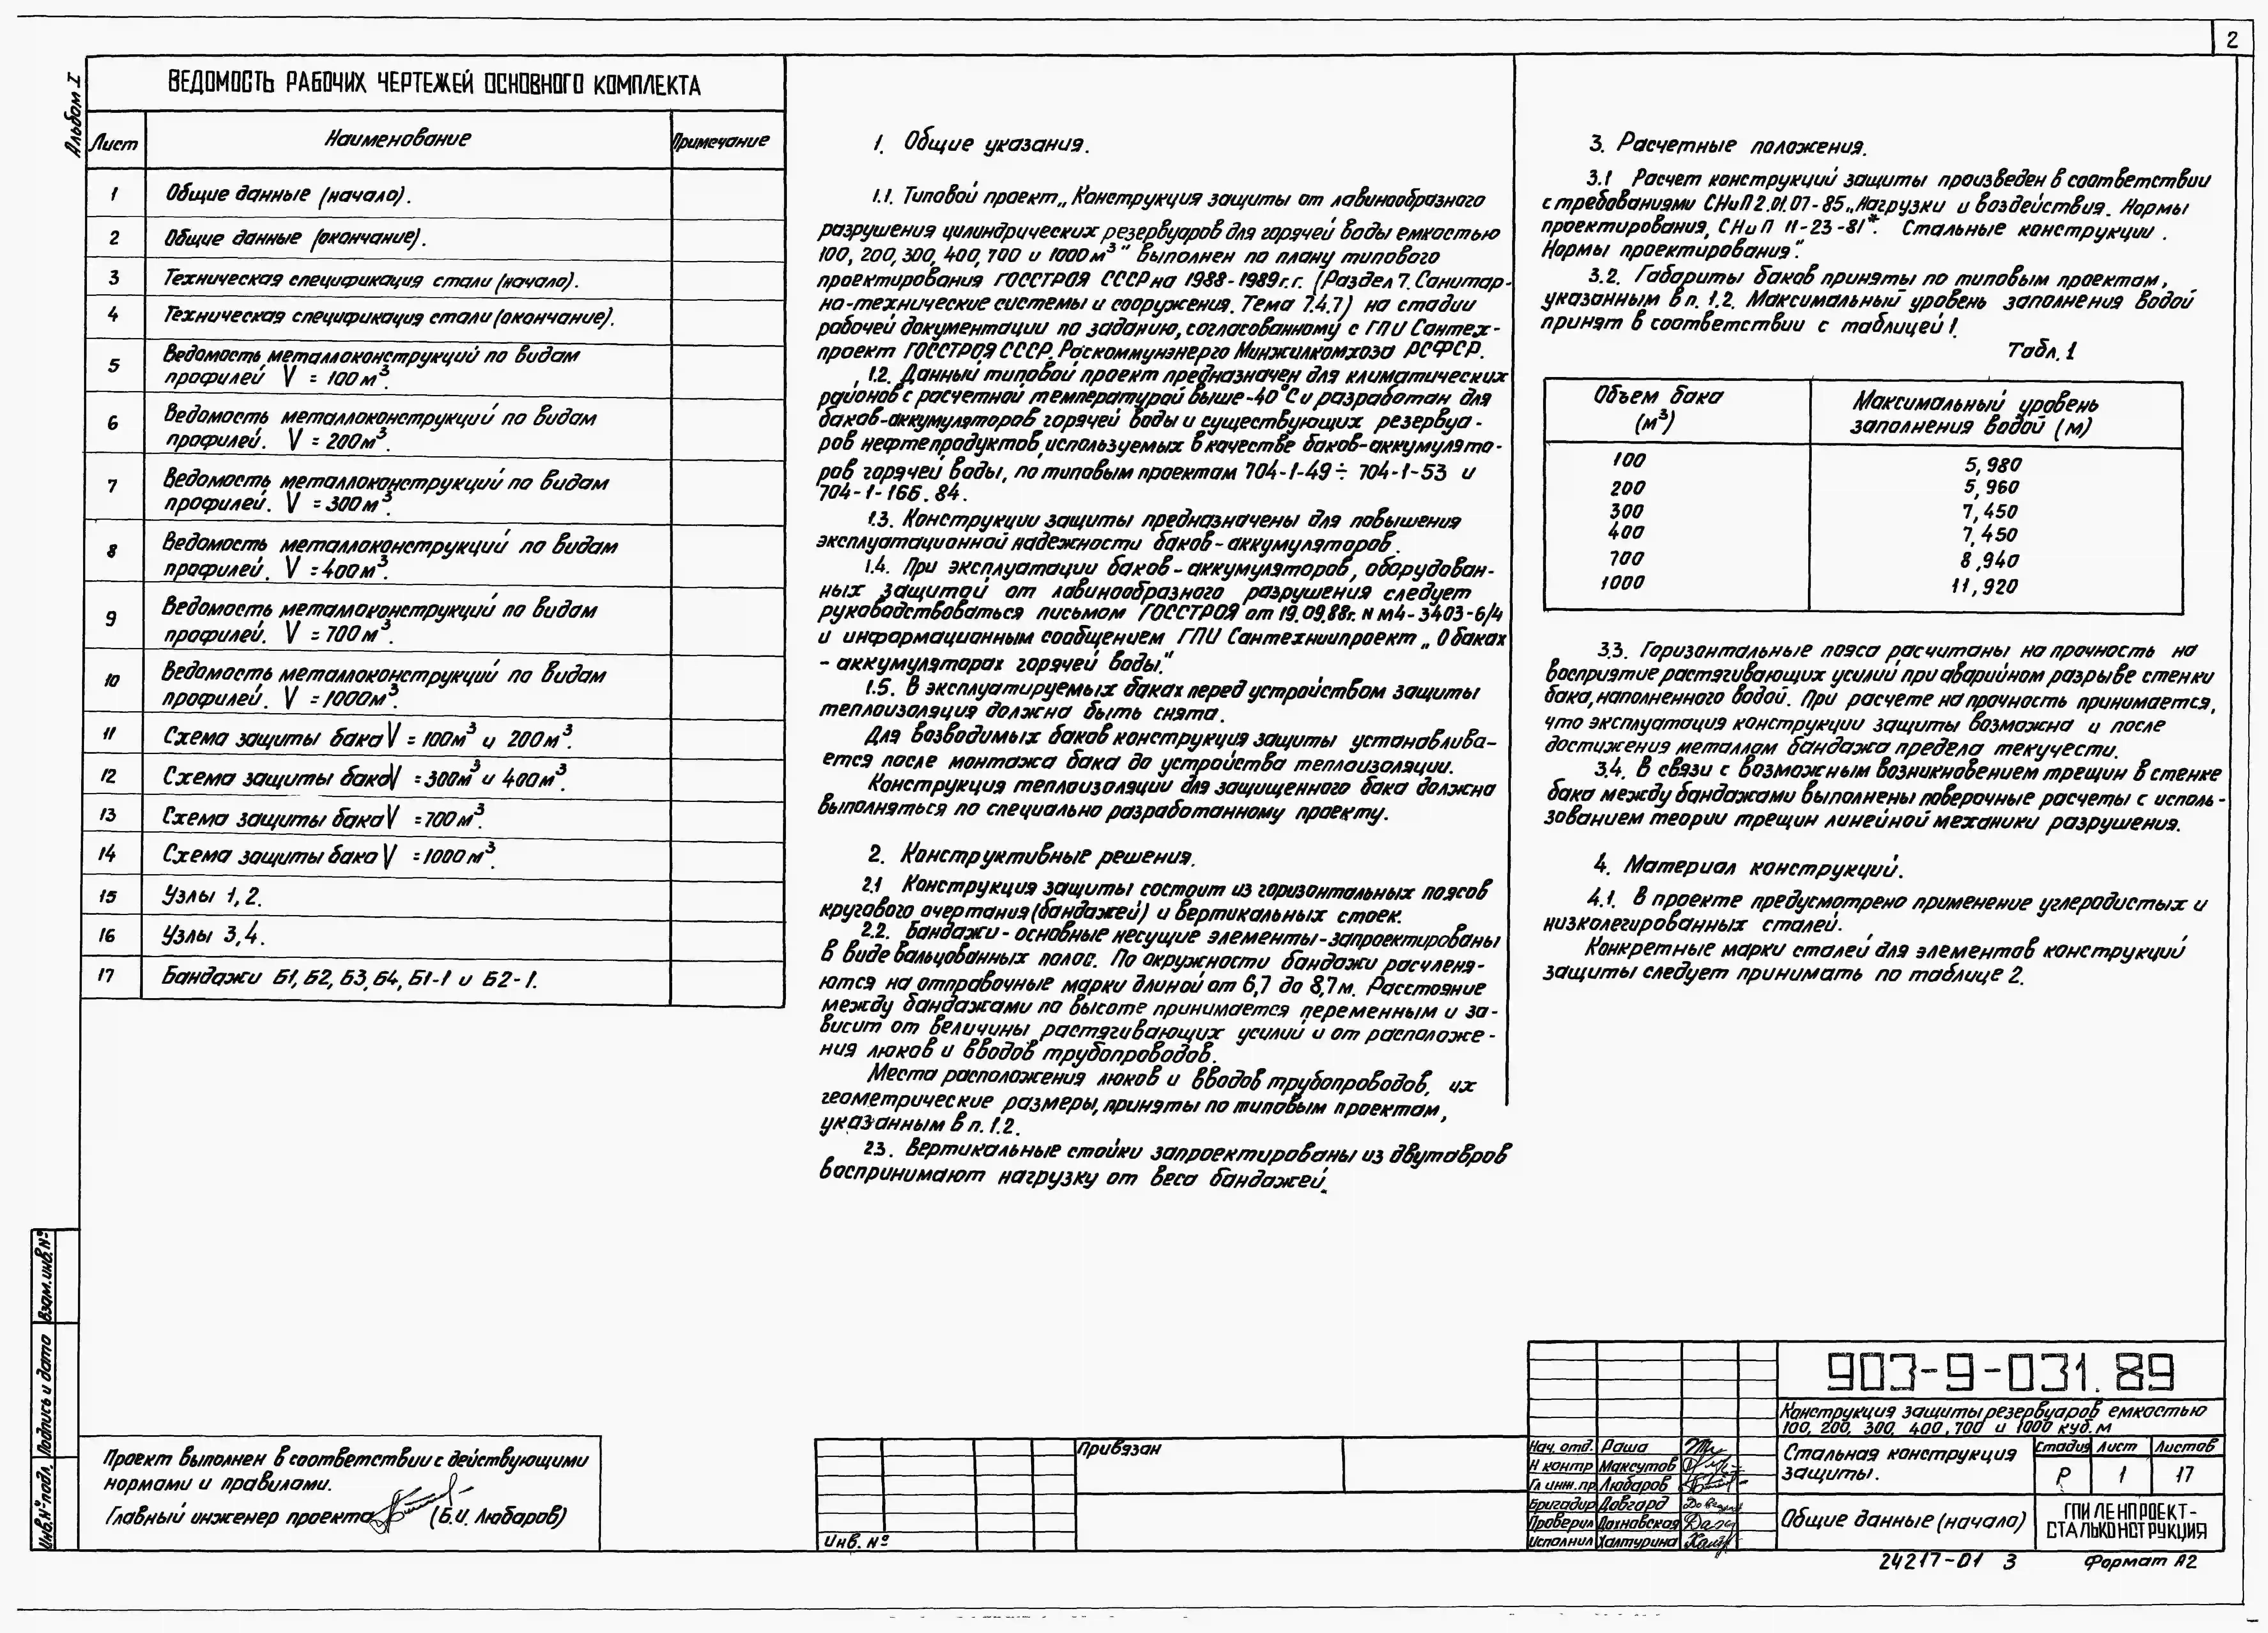 2
Альбом I
ВЕДОМОСТЬ РАБОЧИХ ЧЕРТЕЖЕЙ ОСНОВНОГО КОМПЛЕКТА
Лист Наименование Примечание
1 Общие данные (начало).
2 Общие данные (окончание).
3 Техническая спецификация стали (начало).
4 Техническая спецификация стали (окончание).
5 Ведомость металлоконструкций по видам
профилей V = 100 м³.
6 Ведомость металлоконструкций по видам
профилей. V = 200м³.
7 Ведомость металлоконструкций по видам
профилей. V = 300м³.
8 Ведомость металлоконструкций по видам
профилей. V = 400м³.
9 Ведомость металлоконструкций по видам
профилей. V = 700м³.
10 Ведомость металлоконструкций по видам
профилей. V = 1000м³.
11 Схема защиты бака V = 100м³ и 200м³.
12 Схема защиты бака V = 300м³ и 400м³.
13 Схема защиты бака V = 700м³.
14 Схема защиты бака V = 1000м³.
15 Узлы 1, 2.
16 Узлы 3, 4.
17 Бандажи Б1, Б2, Б3, Б4, Б1-1 и Б2-1.
1. Общие указания.
1.1. Типовой проект „Конструкция защиты от лавинообразного
разрушения цилиндрических резервуаров для горячей воды емкостью
100, 200, 300, 400, 700 и 1000 м³" выполнен по плану типового
проектирования ГОССТРОЯ СССР на 1988-1989г.г. (Раздел 7. Санитар-
но-технические системы и сооружения. Тема 7.4.7) на стадии
рабочей документации по заданию, согласованному с ГПИ Сантех-
проект ГОССТРОЯ СССР, Роскоммунэнерго Минжилкомхоза РСФСР.
1.2. Данный типовой проект предназначен для климатических
районов с расчетной температурой выше -40°С и разработан для
баков-аккумуляторов горячей воды и существующих резервуа-
ров нефтепродуктов, используемых в качестве баков-аккумулято-
ров горячей воды, по типовым проектам 704-1-49 ÷ 704-1-53 и
704-1-166.84.
1.3. Конструкции защиты предназначены для повышения
эксплуатационной надежности баков-аккумуляторов.
1.4. При эксплуатации баков-аккумуляторов, оборудован-
ных защитой от лавинообразного разрушения следует
руководствоваться письмом ГОССТРОЯ от 19.09.88г. N м4-3403-6/4
и информационным сообщением ГПИ Сантехниипроект „О баках
-аккумуляторах горячей воды."
1.5. В эксплуатируемых баках перед устройством защиты
теплоизоляция должна быть снята.
Для возводимых баков конструкция защиты устанавлива-
ется после монтажа бака до устройства теплоизоляции.
Конструкция теплоизоляции для защищенного бака должна
выполняться по специально разработанному проекту.
2. Конструктивные решения.
2.1 Конструкция защиты состоит из горизонтальных поясов
кругового очертания (бандажей) и вертикальных стоек.
2.2. Бандажи - основные несущие элементы - запроектированы
в виде вальцованных полос. По окружности бандажи расчленя-
ются на отправочные марки длиной от 6,7 до 8,7м. Расстояние
между бандажами по высоте принимается переменным и за-
висит от величины растягивающих усилий и от расположе-
ния люков и вводов трубопроводов.
Места расположения люков и вводов трубопроводов, их
геометрические размеры, приняты по типовым проектам,
указанным в п. 1.2.
2.3. Вертикальные стойки запроектированы из двутавров
воспринимают нагрузку от веса бандажей.
3. Расчетные положения.
3.1 Расчет конструкций защиты произведен в соответствии
с требованиями СНиП 2.01.07-85 „Нагрузки и воздействия. Нормы
проектирования, СНиП II-23-81*. Стальные конструкции.
Нормы проектирования".
3.2. Габариты баков приняты по типовым проектам,
указанным в п. 1.2. Максимальный уровень заполнения водой
принят в соответствии с таблицей 1.
Табл. 1
Объем бака (м³) Максимальный уровень заполнения водой (м)
100 5,980
200 5,960
300 7,450
400 7,450
700 8,940
1000 11,920
3.3. Горизонтальные пояса расчитаны на прочность на
восприятие растягивающих усилий при аварийном разрыве стенки
бака, наполненного водой. При расчете на прочность принимается,
что эксплуатация конструкции защиты возможна и после
достижения металлом бандажа предела текучести.
3.4. В связи с возможным возникновением трещин в стенке
бака между бандажами выполнены поверочные расчеты с исполь-
зованием теории трещин линейной механики разрушения.
4. Материал конструкций.
4.1. В проекте предусмотрено применение углеродистых и
низколегированных сталей.
Конкретные марки сталей для элементов конструкций
защиты следует принимать по таблице 2.
Взам.инв.№
Подпись и дата
Инв.№подл.
Проект выполнен в соответствии с действующими
нормами и правилами.
Главный инженер проекта (Б.И. Любаров)
Привязан
Инв. №
903-9-031.89
Конструкция защиты резервуаров емкостью
100, 200, 300, 400, 700 и 1000 куб. м
Нач. отд. Раша
Н контр Максутов
Гл инж.пр Любаров
Бригадир Довгард
Проверил Дахновская
Исполнил Халтурина
Стальная конструкция
защиты.
Стадия Лист Листов
Р 1 17
Общие данные (начало)
ГПИ ЛЕНПРОЕКТ-
СТАЛЬКОНСТРУКЦИЯ
24217-01 3 Формат А2